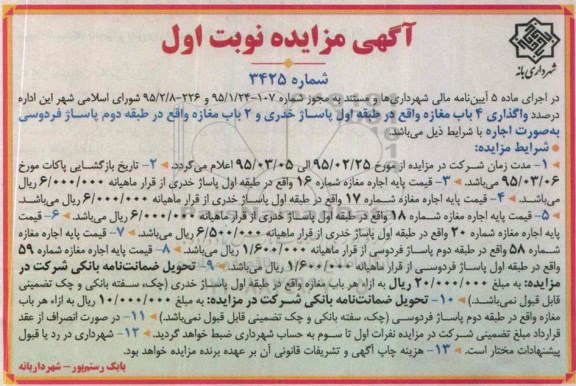 آگهی مزایده نوبت اول
شهرداری بانه
شماره ۳۴۲۵
در اجرای ماده ۵ آیین‌نامه مالی شهرداری‌ها و مستند به مجوز شماره ۱۰۷-۹۵/۱/۲۴ و ۲۲۶-۹۵/۲/۸ شورای اسلامی شهر این اداره
درصدد واگذاری ۴ باب مغازه واقع در طبقه اول پاساژ خدری و ۲ باب مغازه واقع در طبقه دوم پاساژ فردوسی
به‌صورت اجاره با شرایط ذیل می‌باشد.
شرایط مزایده:
۱- مدت زمان شرکت در مزایده از مورخ ۹۵/۰۲/۲۵ الی ۹۵/۰۳/۰۵ اعلام می‌گردد. ۲- تاریخ بازگشایی پاکات مورخ
۹۵/۰۳/۰۶ می‌باشد. ۳- قیمت پایه اجاره مغازه شماره ۱۶ واقع در طبقه اول پاساژ خدری از قرار ماهیانه ۶/۰۰۰/۰۰۰ ریال
می‌باشد. ۴- قیمت پایه اجاره مغازه شماره ۱۷ واقع در طبقه اول پاساژ خدری از قرار ماهیانه ۶/۰۰۰/۰۰۰ ریال می‌باشد.
۵- قیمت پایه اجاره مغازه شماره ۱۸ واقع در طبقه اول پاساژ خدری از قرار ماهیانه ۶/۰۰۰/۰۰۰ ریال می‌باشد. ۶- قیمت
پایه اجاره مغازه شماره ۲۰ واقع در طبقه اول پاساژ خدری از قرار ماهیانه ۶/۵۰۰/۰۰۰ ریال می‌باشد. ۷- قیمت پایه اجاره مغازه
شماره ۵۸ واقع در طبقه دوم پاساژ فردوسی از قرار ماهیانه ۱/۶۰۰/۰۰۰ ریال می‌باشد. ۸- قیمت پایه اجاره مغازه شماره ۵۹
واقع در طبقه اول پاساژ فردوسی از قرار ماهیانه ۱/۶۰۰/۰۰۰ ریال می‌باشد. ۹- تحویل ضمانت‌نامه بانکی شرکت در
مزایده: به مبلغ ۲۰/۰۰۰/۰۰۰ ریال به ازاء هر باب مغازه واقع در طبقه اول پاساژ خدری (چک، سفته بانکی و چک تضمینی
قابل قبول نمی‌باشد.) ۱۰- تحویل ضمانت‌نامه بانکی شرکت در مزایده: به مبلغ ۱۰/۰۰۰/۰۰۰ ریال به ازاء هر باب
مغازه واقع در طبقه دوم پاساژ فردوسی (چک، سفته بانکی و چک تضمینی قابل قبول نمی‌باشد) ۱۱- در صورت انصراف از عقد
قرارداد مبلغ تضمینی شرکت در مزایده نفرات اول تا سوم به حساب شهرداری ضبط خواهد گردید. ۱۲- شهرداری در رد یا قبول
پیشنهادات مختار است. ۱۳- هزینه چاپ آگهی و تشریفات قانونی آن بر عهده برنده مزایده خواهد بود.
بابک رستم‌پور - شهردار بانه